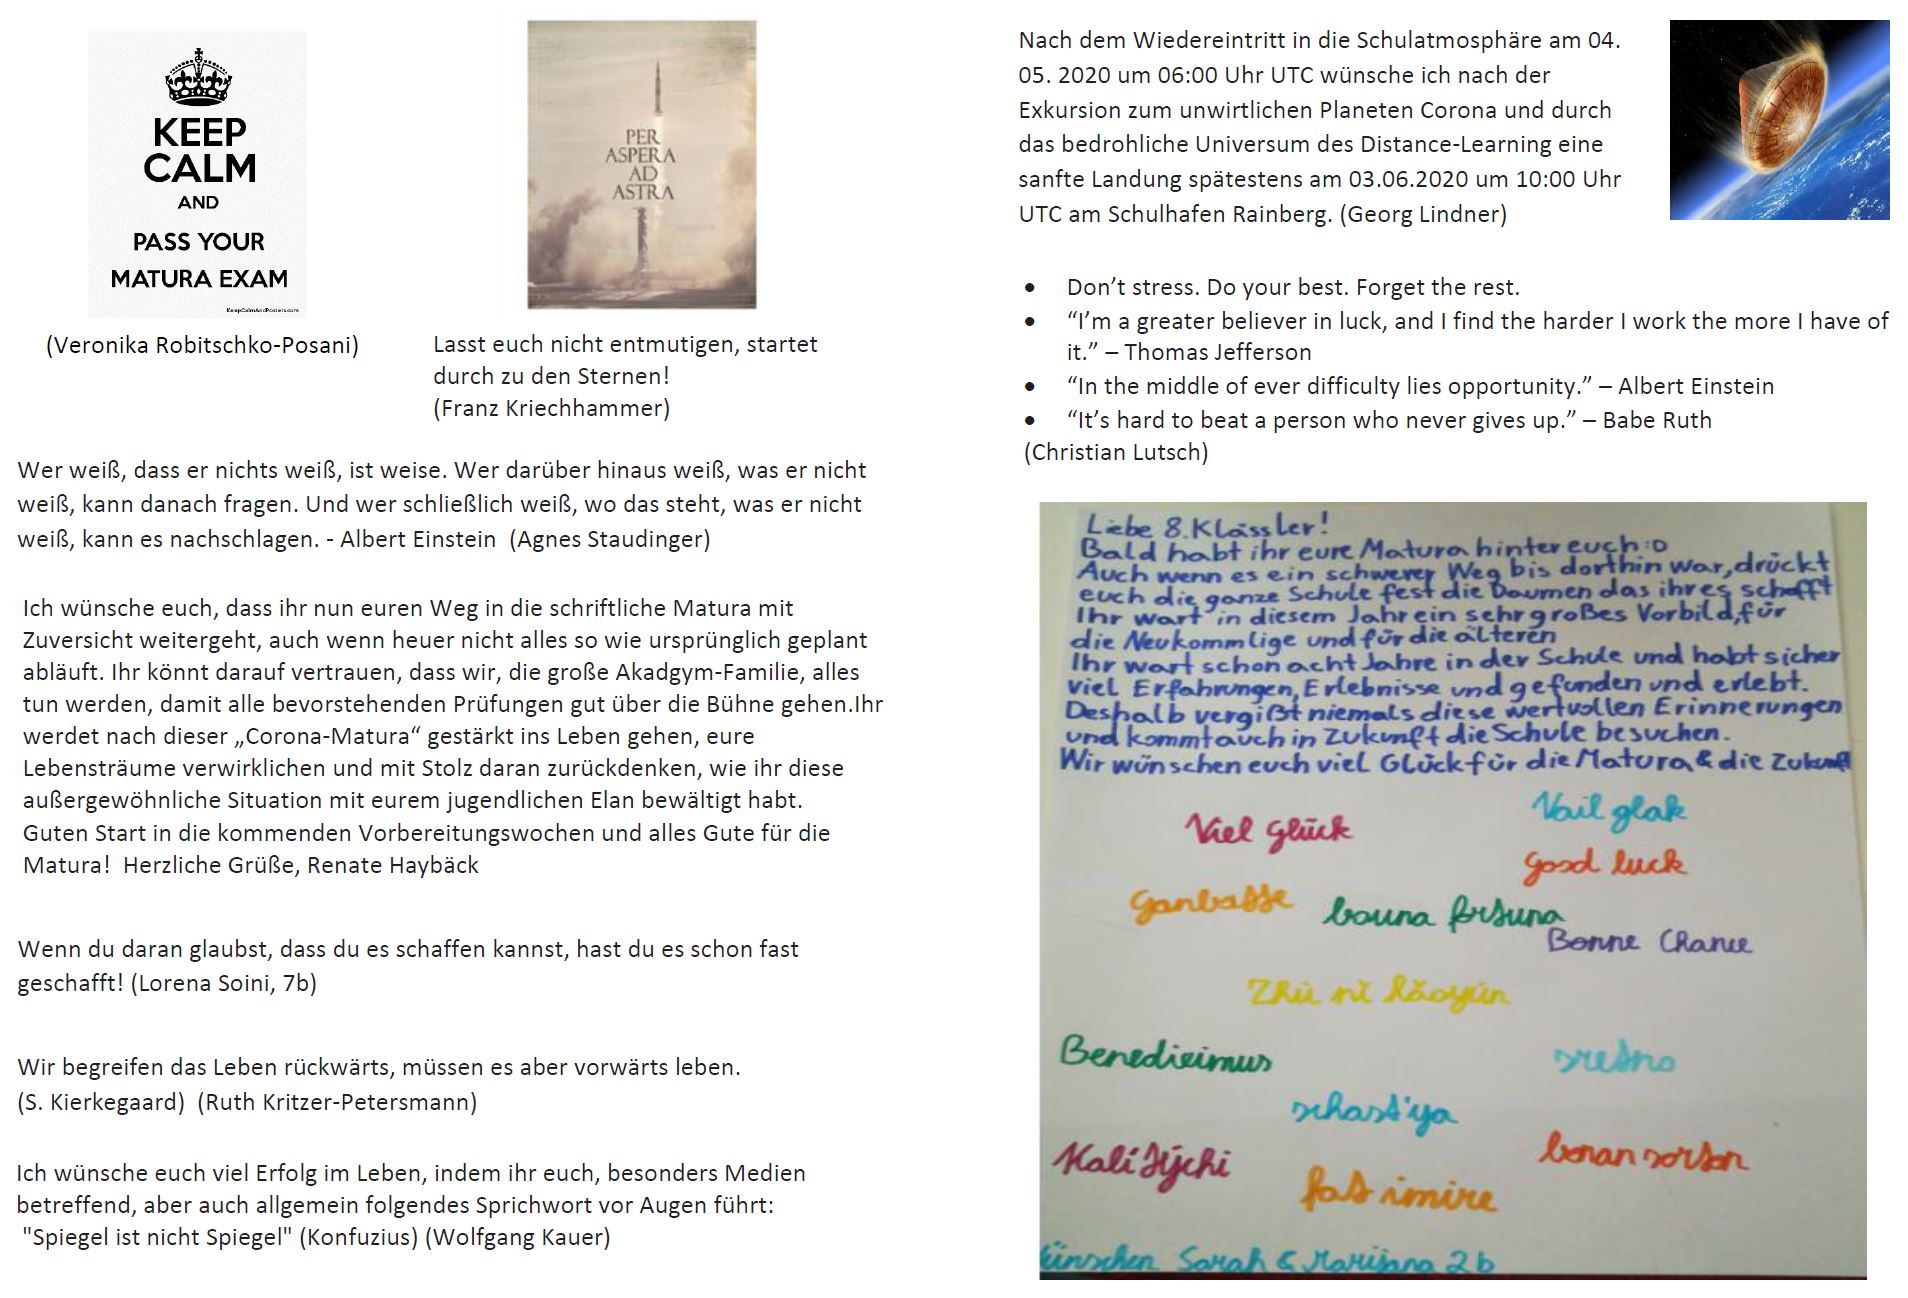 KEEP
CALM
AND
PASS YOUR
MATURA EXAM
KeepCalmAndPosters.com
(Veronika Robitschko-Posani)
PER
ASPERA
AD
ASTRA
Lasst euch nicht entmutigen, startet
durch zu den Sternen!
(Franz Kriechhammer)
Wer weiß, dass er nichts weiß, ist weise. Wer darüber hinaus weiß, was er nicht
weiß, kann danach fragen. Und wer schließlich weiß, wo das steht, was er nicht
weiß, kann es nachschlagen. - Albert Einstein  (Agnes Staudinger)
Ich wünsche euch, dass ihr nun euren Weg in die schriftliche Matura mit
Zuversicht weitergeht, auch wenn heuer nicht alles so wie ursprünglich geplant
abläuft. Ihr könnt darauf vertrauen, dass wir, die große Akadgym-Familie, alles
tun werden, damit alle bevorstehenden Prüfungen gut über die Bühne gehen.Ihr
werdet nach dieser „Corona-Matura“ gestärkt ins Leben gehen, eure
Lebensträume verwirklichen und mit Stolz daran zurückdenken, wie ihr diese
außergewöhnliche Situation mit eurem jugendlichen Elan bewältigt habt.
Guten Start in die kommenden Vorbereitungswochen und alles Gute für die
Matura!  Herzliche Grüße, Renate Haybäck
Wenn du daran glaubst, dass du es schaffen kannst, hast du es schon fast
geschafft! (Lorena Soini, 7b)
Wir begreifen das Leben rückwärts, müssen es aber vorwärts leben.
(S. Kierkegaard)  (Ruth Kritzer-Petersmann)
Ich wünsche euch viel Erfolg im Leben, indem ihr euch, besonders Medien
betreffend, aber auch allgemein folgendes Sprichwort vor Augen führt:
"Spiegel ist nicht Spiegel" (Konfuzius) (Wolfgang Kauer)
Nach dem Wiedereintritt in die Schulatmosphäre am 04.
05. 2020 um 06:00 Uhr UTC wünsche ich nach der
Exkursion zum unwirtlichen Planeten Corona und durch
das bedrohliche Universum des Distance-Learning eine
sanfte Landung spätestens am 03.06.2020 um 10:00 Uhr
UTC am Schulhafen Rainberg. (Georg Lindner)
• Don’t stress. Do your best. Forget the rest.
• “I’m a greater believer in luck, and I find the harder I work the more I have of
it.” – Thomas Jefferson
• “In the middle of ever difficulty lies opportunity.” – Albert Einstein
• “It’s hard to beat a person who never gives up.” – Babe Ruth
(Christian Lutsch)
Liebe 8.Klässler!
Bald habt ihr eure Matura hinter euch :D
Auch wenn es ein schwerer Weg bis dorthin war, drückt
euch die ganze Schule fest die Daumen das ihr es schafft
Ihr wart in diesem Jahr ein sehr großes Vorbild, für
die Neukommlige und für die älteren
Ihr wart schon acht Jahre in der Schule und habt sicher
viel Erfahrungen, Erlebnisse und gefunden und erlebt.
Deshalb vergißt niemals diese wertvollen Erinnerungen
und kommt auch in Zukunft die Schule besuchen.
Wir wünschen euch viel Glück für die Matura & die Zukunft
Viel Glück
Vail glak
Good luck
Ganbatte
bouna fortuna
Bonne Chance
Zhù nǐ hǎoyùn
Benedicimus
sretno
schast'ya
Kalí týchi
bonan sorton
fat imire
wünschen Sarah & Marijana 2b